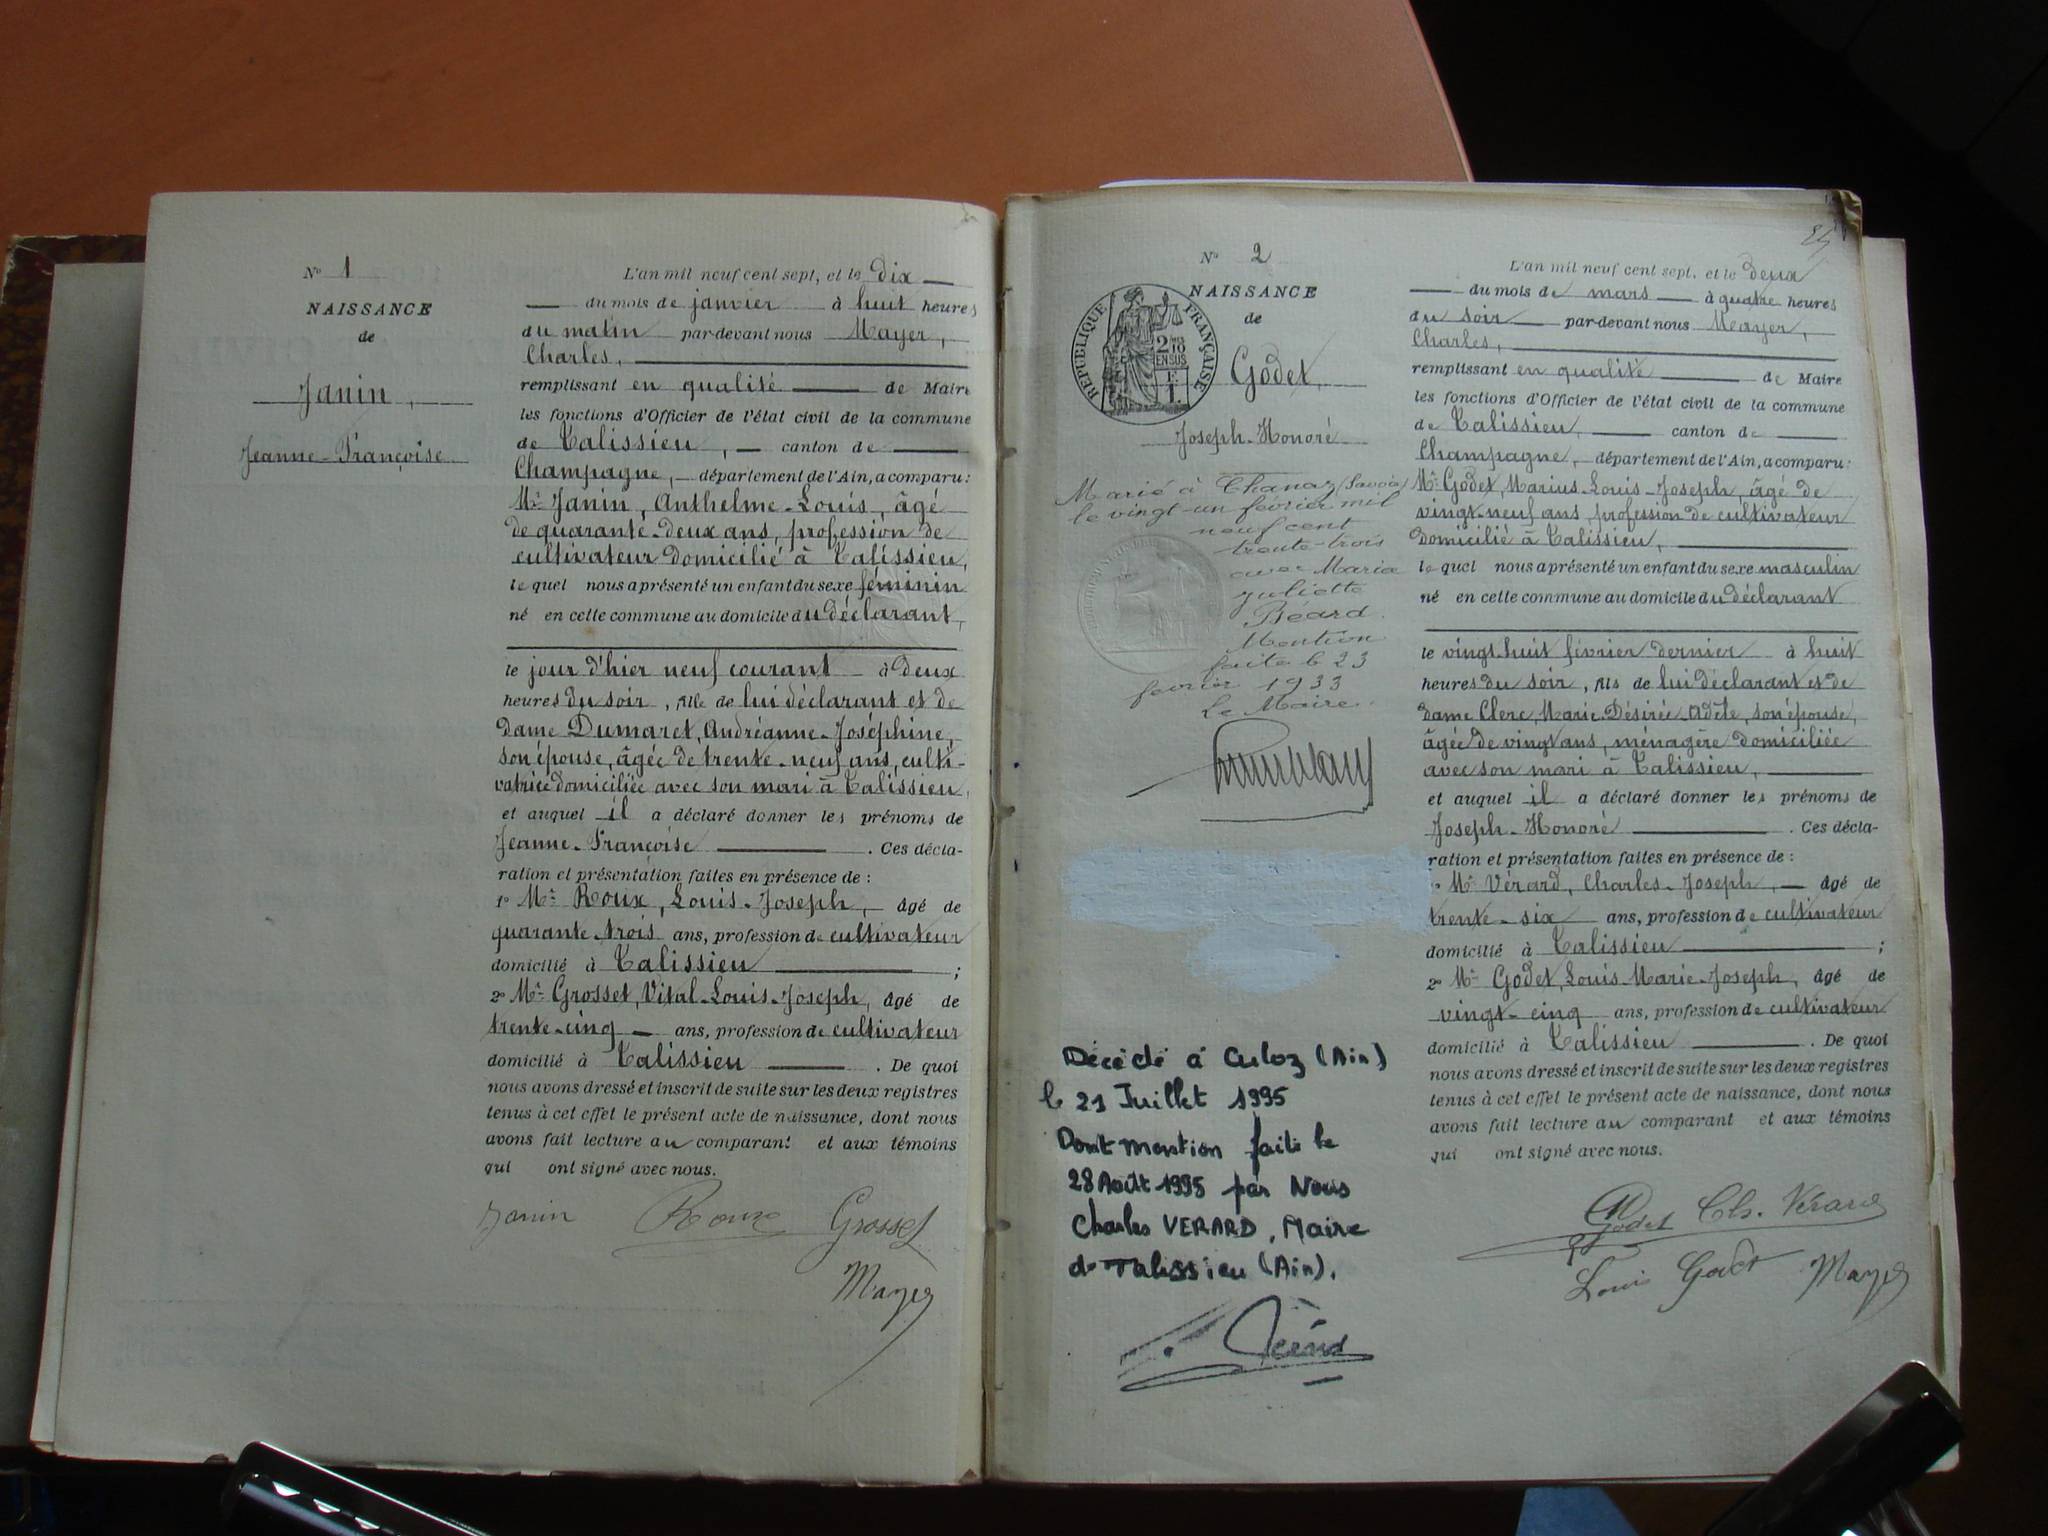 Nº 1
NAISSANCE
de
Janin,
Jeanne-Françoise
L'an mil neuf cent sept, et le dix
du mois de janvier à huit heures
du matin par-devant nous Mayer,
Charles,
remplissant en qualité de Maire
les fonctions d'Officier de l'état civil de la commune
de Talissieu, canton de
Champagne, département de l'Ain, a comparu:
Mr Janin, Anthelme-Louis, âgé
de quarante-deux ans, profession de
cultivateur domicilié à Talissieu,
le quel nous a présenté un enfant du sexe féminin
né en cette commune au domicile du déclarant,
le jour d'hier neuf courant à deux
heures du soir, fille de lui déclarant et de
dame Dumaret, Andréanne-Joséphine,
son épouse, âgée de trente-neuf ans, culti-
vatrice domiciliée avec son mari à Talissieu,
et auquel il a déclaré donner les prénoms de
Jeanne-Françoise. Ces décla-
ration et présentation faites en présence de :
1º Mr Roux, Louis-Joseph, âgé de
quarante-trois ans, profession de cultivateur
domicilié à Talissieu ;
2º Mr Grosset, Vital-Louis-Joseph, âgé de
trente-cinq ans, profession de cultivateur
domicilié à Talissieu. De quoi
nous avons dressé et inscrit de suite sur les deux registres
tenus à cet effet le présent acte de naissance, dont nous
avons fait lecture au comparant et aux témoins
qui ont signé avec nous.
Janin Roux Grosset
Mayer
Nº 2
NAISSANCE
de
REPUBLIQUE FRANÇAISE
2 10
EN SUS
Godet,
Joseph-Honoré
Marié à Chanaz (Savoie)
le vingt-un février mil
neuf cent
trente-trois
avec Maria
Juliette
Béard.
Mention
faite le 23
février 1933
Le Maire.
Décédé à Culoz (Ain)
le 21 Juillet 1995
Dont mention faite le
28 Août 1995 par Nous
Charles VERARD, Maire
de Talissieu (Ain).
Vérard
L'an mil neuf cent sept, et le deux
du mois de mars à quatre heures
du soir par-devant nous Mayer,
Charles,
remplissant en qualité de Maire
les fonctions d'Officier de l'état civil de la commune
de Talissieu, canton de
Champagne, département de l'Ain, a comparu:
Mr Godet, Marius-Louis-Joseph, âgé de
vingt-neuf ans, profession de cultivateur
domicilié à Talissieu,
le quel nous a présenté un enfant du sexe masculin
né en cette commune au domicile du déclarant
le vingt-huit février dernier à huit
heures du soir, fils de lui déclarant et de
dame Clerc, Marie-Désirée-Adèle, son épouse,
âgée de vingt ans, ménagère domiciliée
avec son mari à Talissieu,
et auquel il a déclaré donner les prénoms de
Joseph-Honoré. Ces décla-
ration et présentation faites en présence de :
Mr Vérard, Charles-Joseph, âgé de
trente-six ans, profession de cultivateur
domicilié à Talissieu ;
2º Mr Godet, Louis-Marie-Joseph, âgé de
vingt-cinq ans, profession de cultivateur
domicilié à Talissieu. De quoi
nous avons dressé et inscrit de suite sur les deux registres
tenus à cet effet le présent acte de naissance, dont nous
avons fait lecture au comparant et aux témoins
qui ont signé avec nous.
Godet Ch. Vérard
Louis Godet Mayer